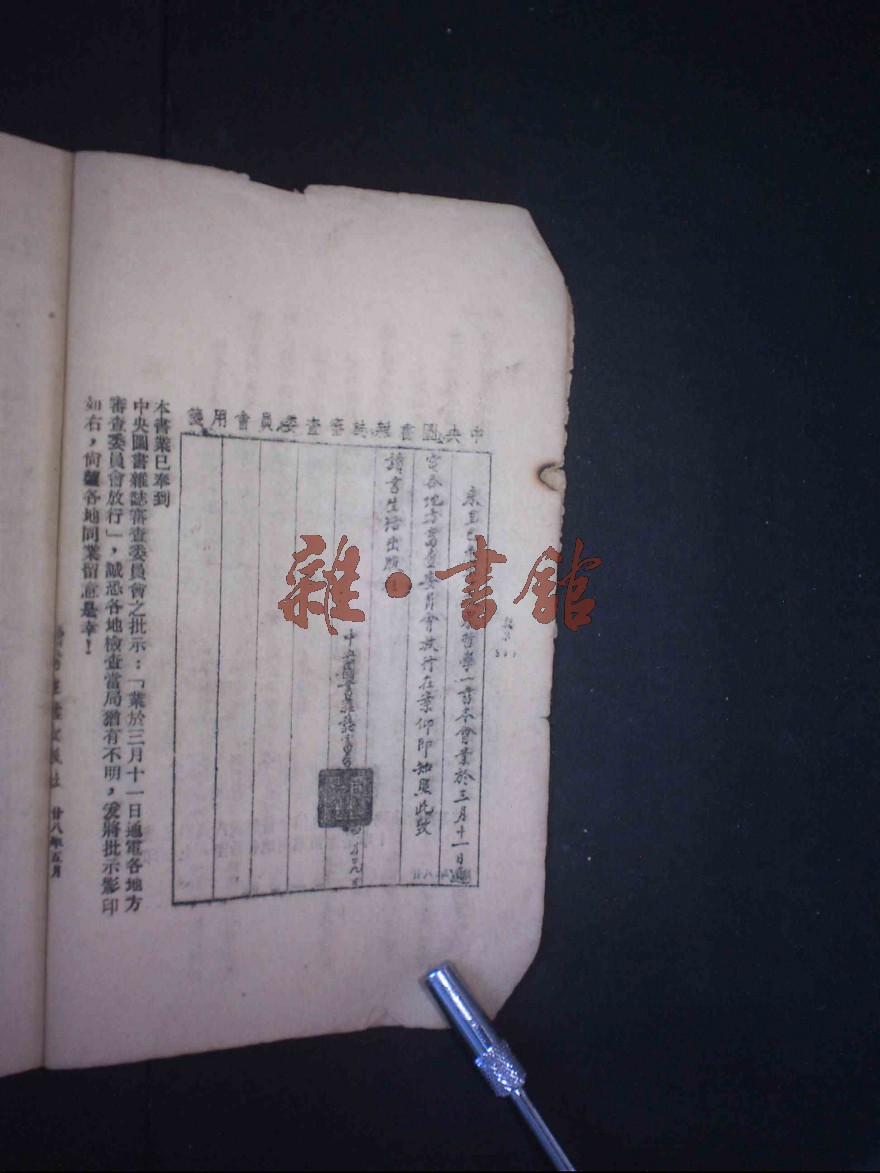 中央圖書雜誌審查委員會用箋
哲學一書本會業於三月十一日通
電各地方審查委員會放行在案仰即知照此致
讀書生活出版
中央圖書雜誌審
本書業已奉到
中央圖書雜誌審查委員會之批示：「業於三月十一日通電各地方
審查委員會放行」，誠恐各地檢查當局猶有不明，爰將批示影印
如右，尙祈各地同業留意是幸！
廿八年五月
雜·書館